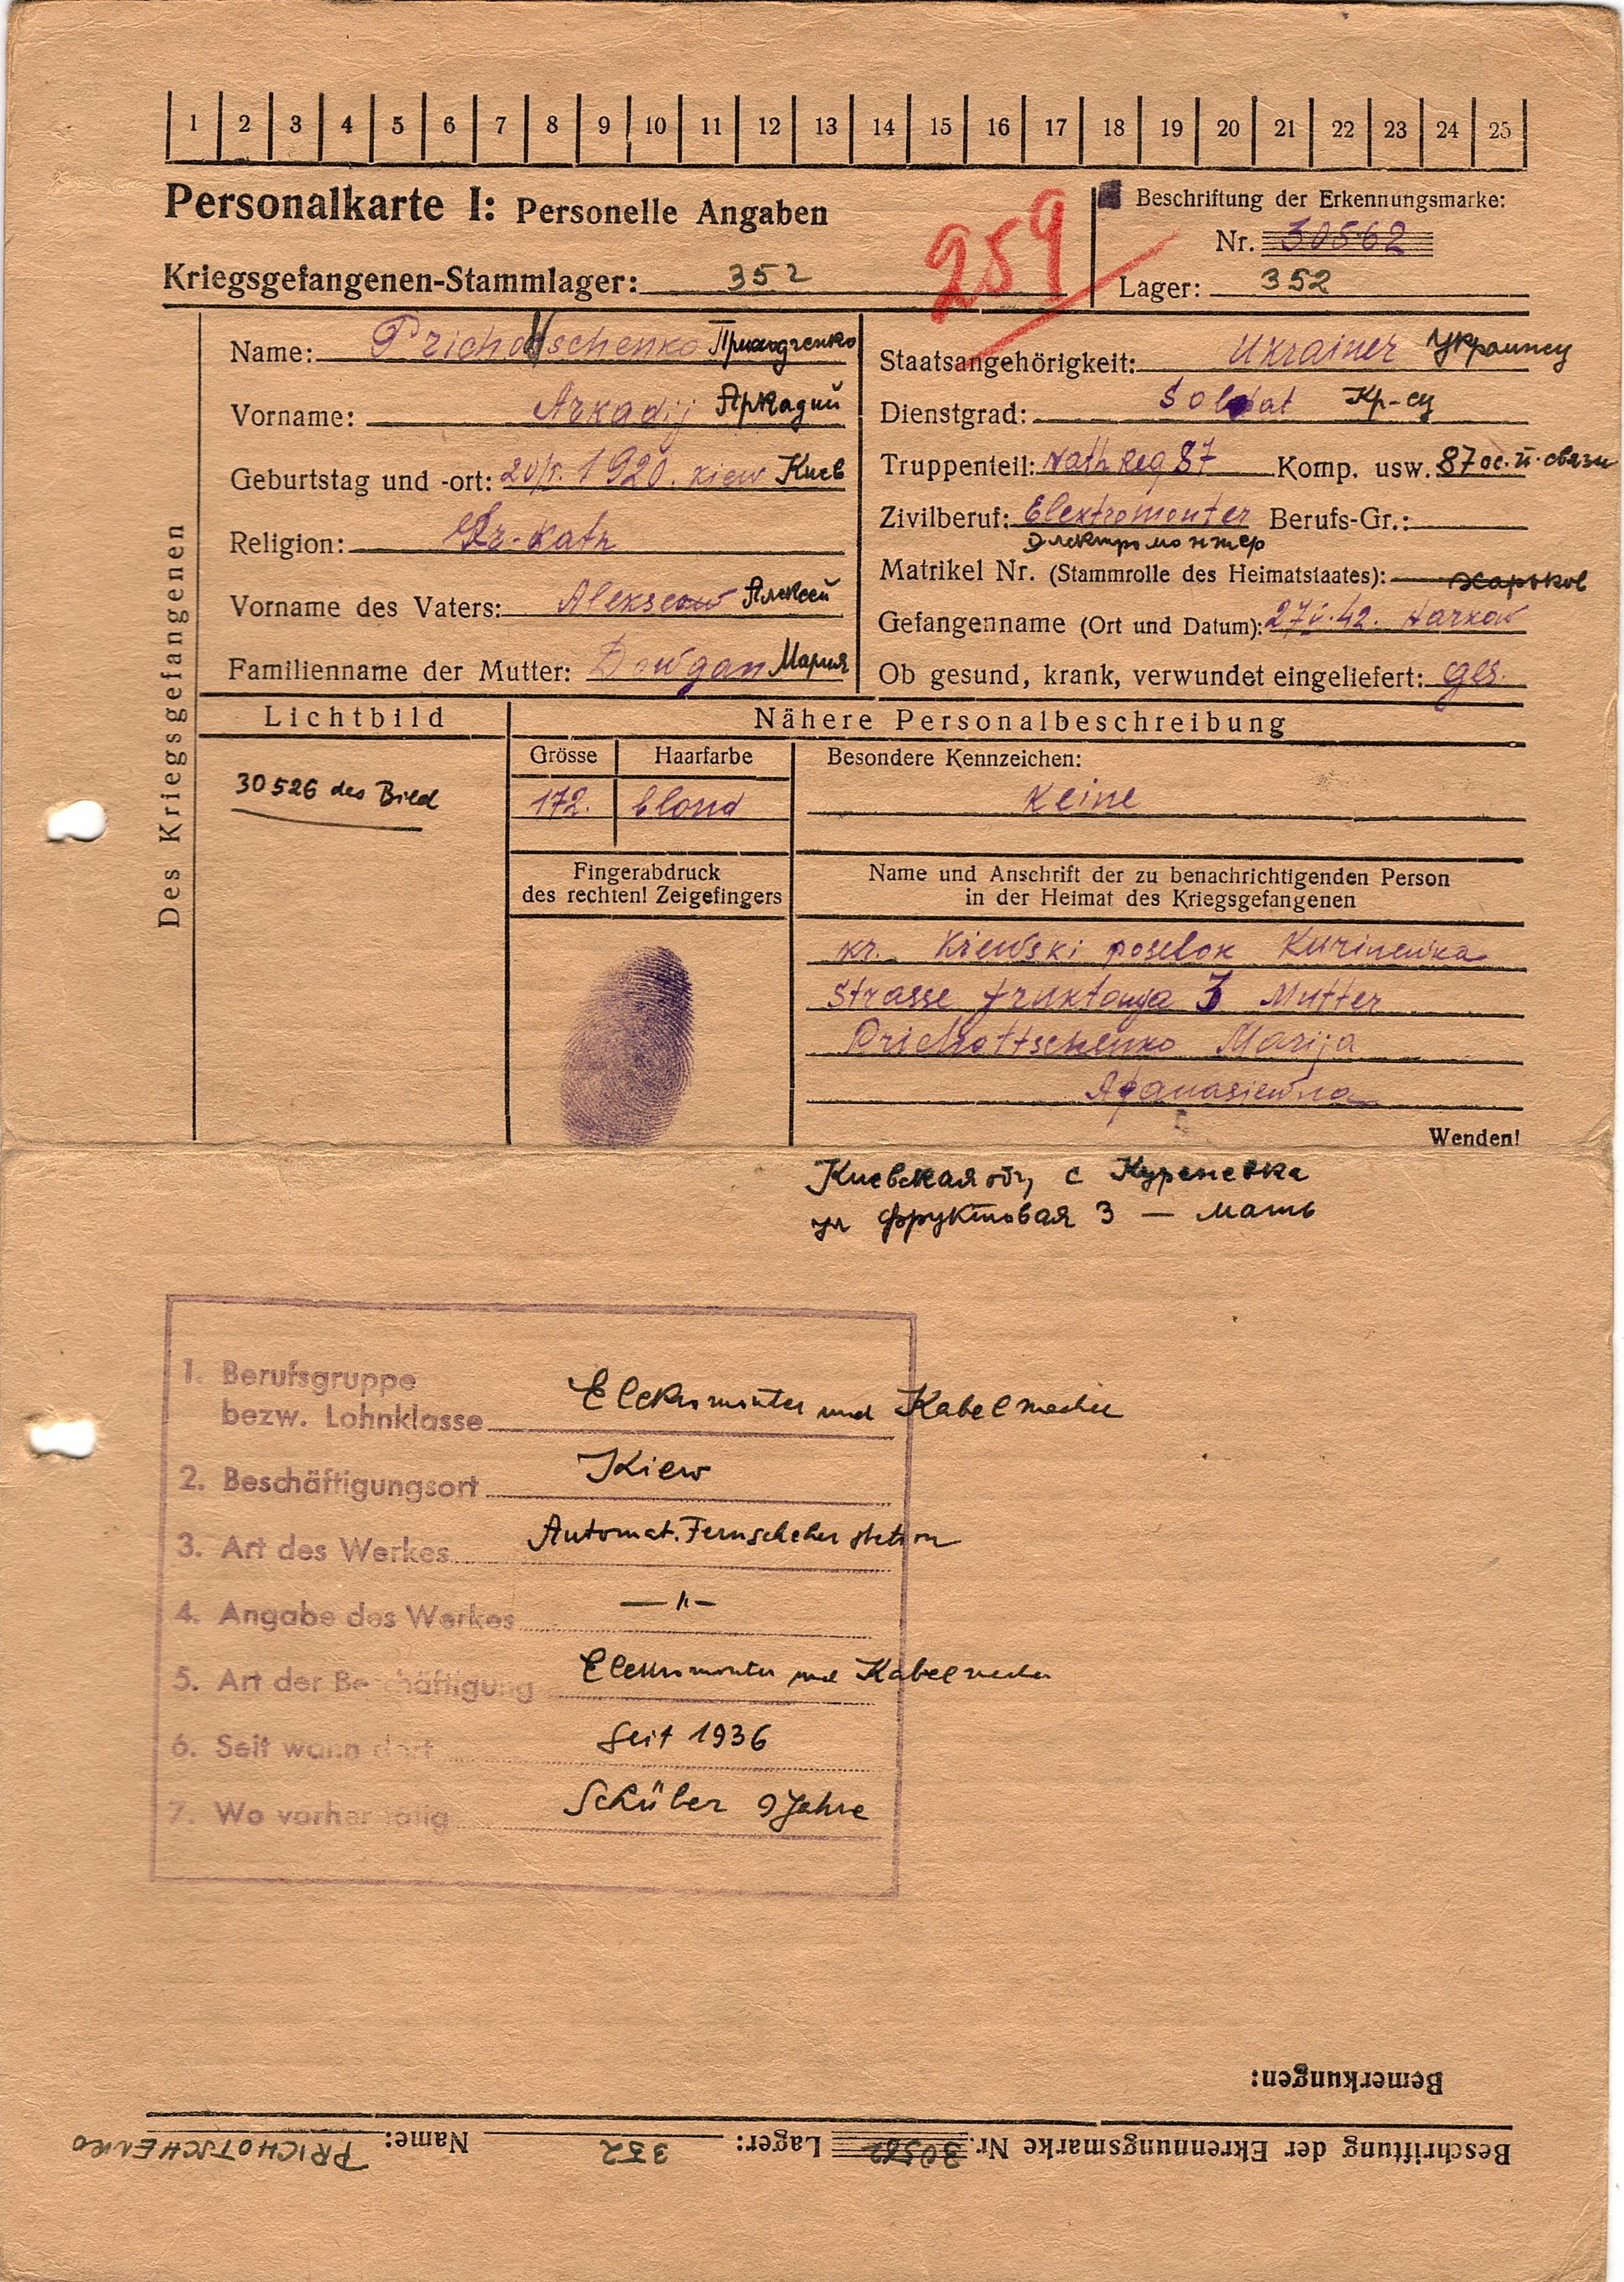 1 2 3 4 5 6 7 8 9 10 11 12 13 14 15 16 17 18 19 20 21 22 23 24 25
Personalkarte I: Personelle Angaben
259
Beschriftung der Erkennungsmarke:
Nr. 30562
Kriegsgefangenen-Stammlager: 352
Lager: 352
Des Kriegsgefangenen
Name: Prichotschenko Приходченко
Vorname: Arkadij Аркадий
Geburtstag und -ort: 1920. Kiew Киев
Religion: Gr-Kath
Vorname des Vaters: Алексей
Familienname der Mutter: Dowgan Мария
Staatsangehörigkeit: Ukrainer Украинец
Dienstgrad: Soldat Кр-ец
Truppenteil: Reg 87 Komp. usw. 87 ос. п. связи
Zivilberuf: Elektromonter Berufs-Gr.:
Электромонтер
Matrikel Nr. (Stammrolle des Heimatstaates): Харьков
Gefangenname (Ort und Datum): 27/V.42. Harkow
Ob gesund, krank, verwundet eingeliefert: ges.
Lichtbild
30526 des Bild
Nähere Personalbeschreibung
Grösse Haarfarbe Besondere Kennzeichen:
172. blond keine
Fingerabdruck
des rechten! Zeigefingers
Name und Anschrift der zu benachrichtigenden Person
in der Heimat des Kriegsgefangenen
kr. Kiewski poselok Kurinewka
Strasse fruktowja 3 Mutter
Prichottschenko Marija
Afanasiewna
Wenden!
Киевская об, с Куреневка
ул Фруктовая 3 — мать
1. Berufsgruppe
bezw. Lohnklasse Elektromonter und Kabelmacher
2. Beschäftigungsort Kiew
3. Art des Werkes Automat. Fernsprecher station
4. Angabe des Werkes — " —
5. Art der Beschäftigung Elektromonter und Kabelmacher
6. Seit wann dort Seit 1936
7. Wo vorher tätig Schüler 9 Jahre
Bemerkungen:
Beschriftung der Ekrennungsmarke Nr. 30562 Lager: 352 Name: PRICHOTSCHENKO